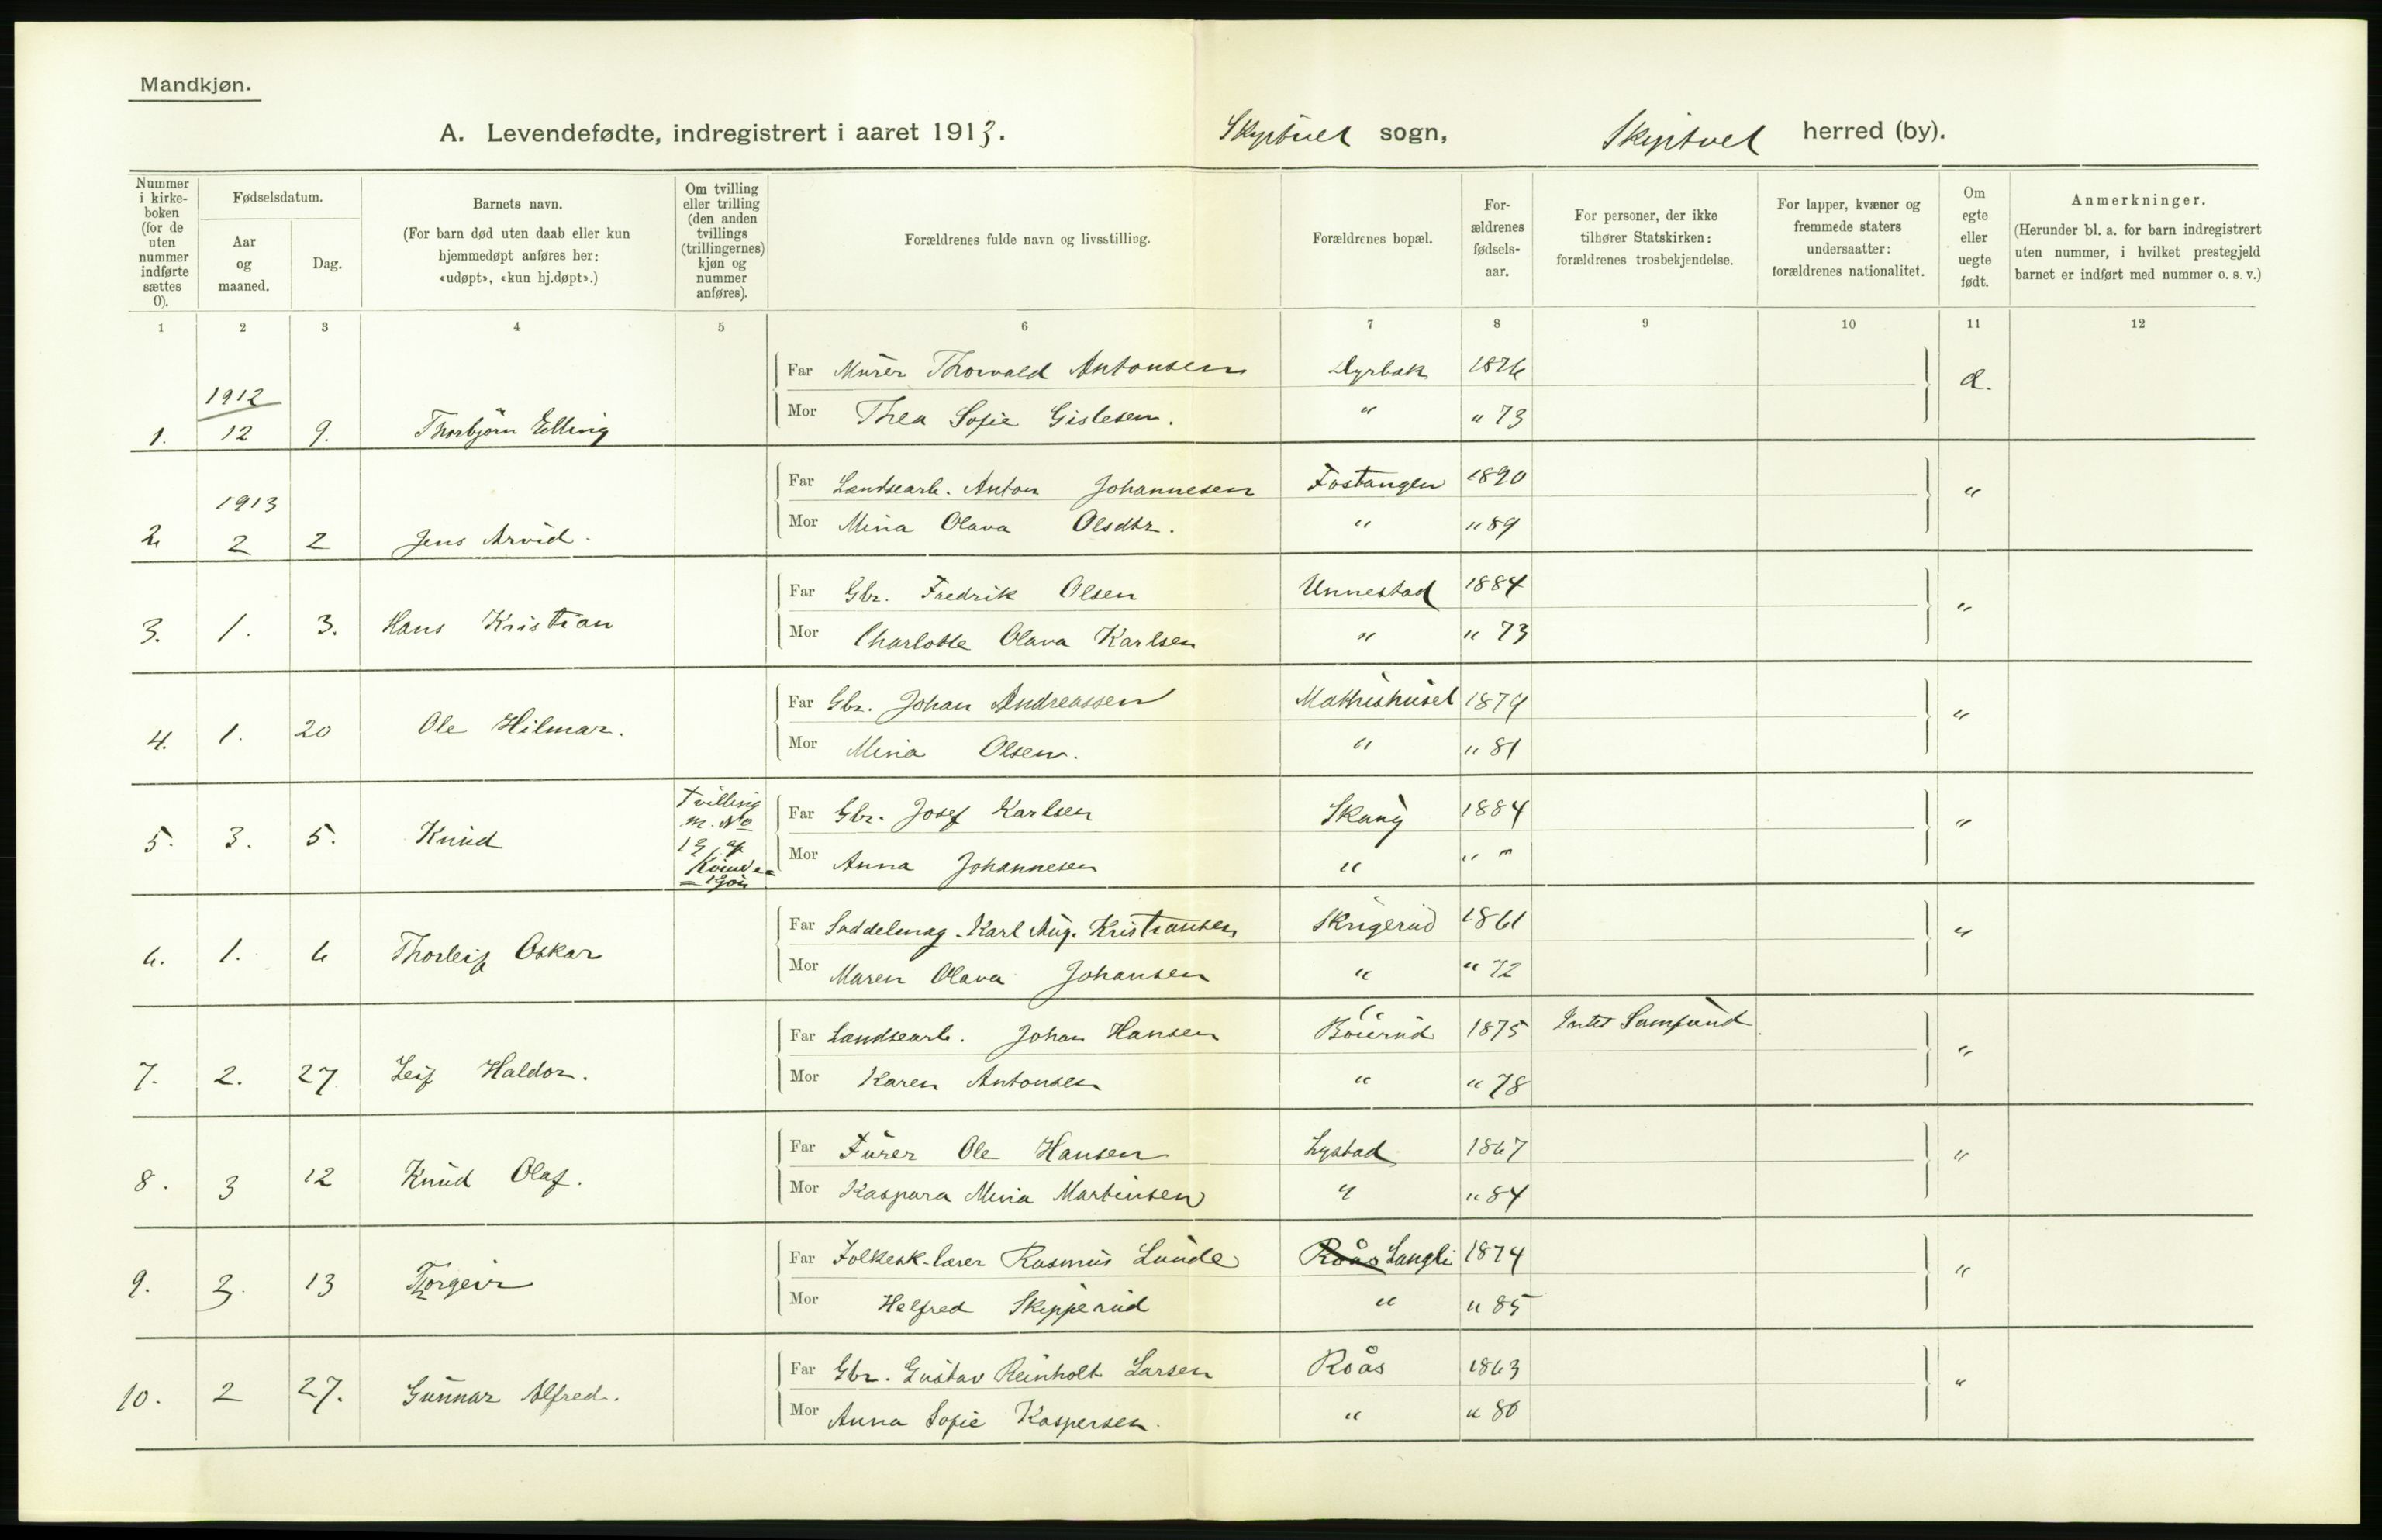 Mandkjøn.
A. Levendefødte, indregistrert i aaret 1913. Skiptvet sogn, Skiptvet herred (by).
Nummer i kirke- boken (for de uten nummer indførte sættes 0).
Fødselsdatum.
Aar og maaned.
Dag.
Barnets navn.
(For barn død uten daab eller kun hjemmedøpt anføres her: «udøpt», «kun hj.døpt».)
Om tvilling eller trilling (den anden tvillings (trillingernes) kjøn og nummer anføres).
Forældrenes fulde navn og livsstilling.
Forældrenes bopæl.
For- ældrenes fødsels- aar.
For personer, der ikke tilhører Statskirken: forældrenes trosbekjendelse.
For lapper, kvæner og fremmede staters undersaatter: forældrenes nationalitet.
Om egte eller uegte født.
Anmerkninger.
(Herunder bl. a. for barn indregistrert uten nummer, i hvilket prestegjeld barnet er indført med nummer o. s. v.)
1 2 3 4 5 6 7 8 9 10 11 12
Far Murer Thorvald Antonsen Dyrbak 1876
1912
1. 12 9. Thorbjørn Elling
Mor Thea Sofie Gislesen. " " 73
Far Landsearb. Anton Johannesen Fostangen 1890 "
1913
2 2 2 Jens Arvid.
Mor Mina Olava Olsdtr. " " 89
Far Gbr. Fredrik Olsen Unnestad 1884 "
3. 1. 3. Hans Kristian
Mor Charlotte Olava Karlsen " " 73
Far Gbr. Johan Andreassen Mathishuset 1879 "
4. 1. 20 Ole Hilmar.
Mor Mina Olsen. " " 81
Far Gbr. Josef Karlsen 1884 "
5. 3. 5. Knud Tvilling m. No 19 af Kvindekjøn
Mor Anna Johannesen " " "
Far Saddelmag. Karl Aug. Kristiansen Skrigerud 1861 "
6. 1. 6 Thorleif Oskar
Mor Maren Olava Johansen " " 72
Far Landsearb. Johan Hansen Böierud 1875 Intet Samfund "
7. 2. 27 Leif Haldor.
Mor Karen Antonsen " " 78
Far Furer Ole Hansen Lystad 1867 "
8. 3 12 Knud Olaf.
Mor Kaspara Mina Martinsen " " 84
Far Folkesk. lærer Rasmus Lunde Roås Langli 1874 "
9. 3. 13 Torgeir
Mor Helfred Skipperud " " 85
Far Gbr. Gustav Reinholt Larsen Roås 1863 "
10. 2 27. Gunnar Alfred.
Mor Anna Sofie Kaspersen. " " 80